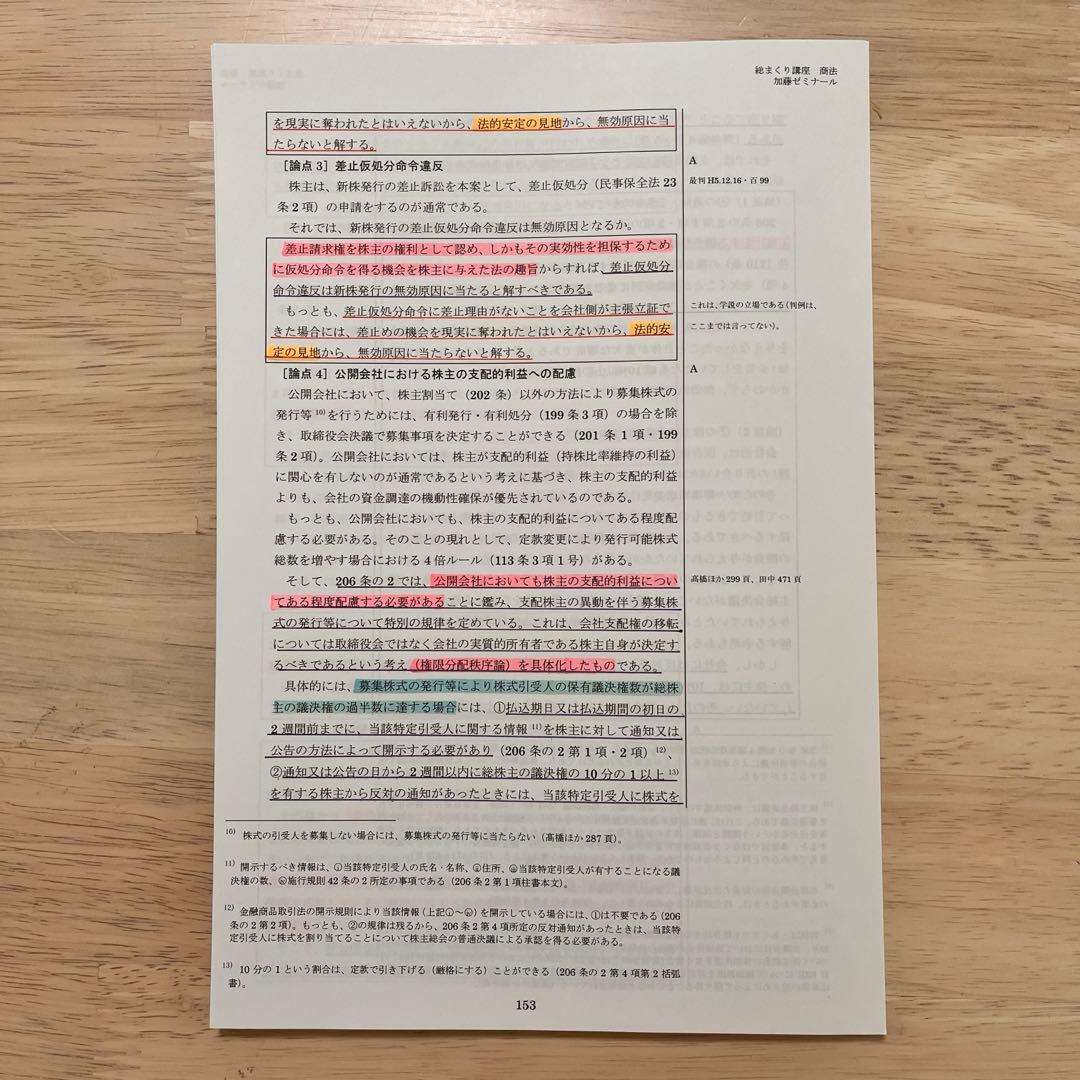 総まくり講座　商法
加藤ゼミナール
を現実に奪われたとはいえないから、法的安定の見地から、無効原因に当
たらないと解する。
［論点 3］差止仮処分命令違反
A
株主は、新株発行の差止訴訟を本案として、差止仮処分（民事保全法 23
最判 H5.12.16・百 99
条 2 項）の申請をするのが通常である。
それでは、新株発行の差止仮処分命令違反は無効原因となるか。
差止請求権を株主の権利として認め、しかもその実効性を担保するため
に仮処分命令を得る機会を株主に与えた法の趣旨からすれば、差止仮処分
命令違反は新株発行の無効原因に当たると解すべきである。
もっとも、差止仮処分命令に差止理由がないことを会社側が主張立証で
これは、学説の立場である（判例は、
きた場合には、差止めの機会を現実に奪われたとはいえないから、法的安
ここまでは言ってない）。
定の見地から、無効原因に当たらないと解する。
［論点 4］公開会社における株主の支配的利益への配慮
A
公開会社において、株主割当て（202 条）以外の方法により募集株式の
発行等 10) を行うためには、有利発行・有利処分（199 条 3 項）の場合を除
き、取締役会決議で募集事項を決定することができる（201 条 1 項・199
条 2 項）。公開会社においては、株主が支配的利益（持株比率維持の利益）
に関心を有しないのが通常であるという考えに基づき、株主の支配的利益
よりも、会社の資金調達の機動性確保が優先されているのである。
もっとも、公開会社においても、株主の支配的利益についてある程度配
慮する必要がある。そのことの現れとして、定款変更により発行可能株式
総数を増やす場合における 4 倍ルール（113 条 3 項 1 号）がある。
そして、206 条の 2 では、公開会社においても株主の支配的利益につい
髙橋ほか 299 頁、田中 471 頁
てある程度配慮する必要があることに鑑み、支配株主の異動を伴う募集株
式の発行等について特別の規律を定めている。これは、会社支配権の移転
については取締役会ではなく会社の実質的所有者である株主自身が決定す
るべきであるという考え（権限分配秩序論）を具体化したものである。
具体的には、募集株式の発行等により株式引受人の保有議決権数が総株
主の議決権の過半数に達する場合には、①払込期日又は払込期間の初日の
2 週間前までに、当該特定引受人に関する情報 11) を株主に対して通知又は
公告の方法によって開示する必要があり（206 条の 2 第 1 項・2 項）12)、
②通知又は公告の日から 2 週間以内に総株主の議決権の 10 分の 1 以上 13)
を有する株主から反対の通知があったときには、当該特定引受人に株式を
10) 株式の引受人を募集しない場合には、募集株式の発行等に当たらない（髙橋ほか 287 頁）。
11) 開示するべき情報は、㋐当該特定引受人の氏名・名称、㋑住所、㋒当該特定引受人が有することになる議
決権の数、㋓施行規則 42 条の 2 所定の事項である（206 条 2 第 1 項柱書本文）。
12) 金融商品取引法の開示規則により当該情報（上記㋐～㋓）を開示している場合には、①は不要である（206
条の 2 第 2 項）。もっとも、②の規律は残るから、206 条 2 第 4 項所定の反対通知があったときは、当該特
定引受人に株式を割り当てることについて株主総会の普通決議による承認を得る必要がある。
13) 10 分の 1 という割合は、定款で引き下げる（厳格にする）ことができる（206 条の 2 第 4 項第 2 括弧
書）。
153